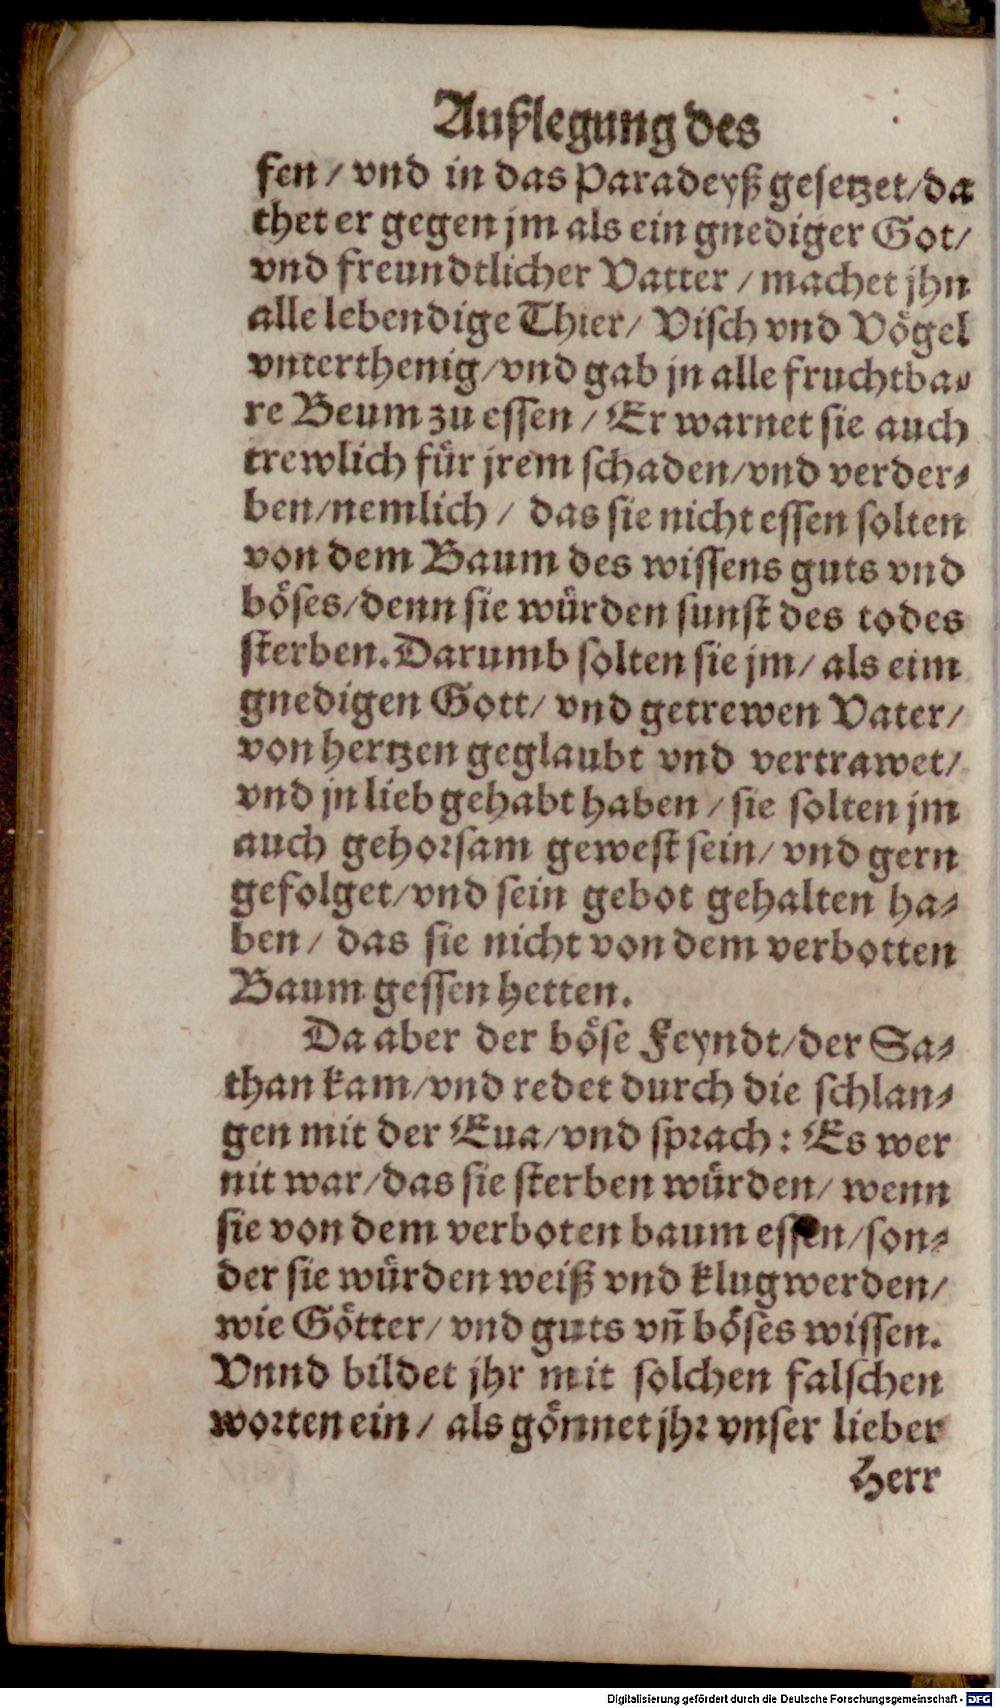 Außlegung des
fen / vnd in das Paradeyß gesetzet/da
thet er gegen jm als ein gnediger Got/
vnd freundtlicher Vatter / machet jhn
alle lebendige Thier/ Visch vnd Vögel
vnterthenig/vnd gab jn alle fruchtba-
re Beum zu essen / Er warnet sie auch
trewlich für jrem schaden/vnd verder-
ben/nemlich / das sie nicht essen solten
von dem Baum des wissens guts vnd
böses/denn sie würden sunst des todes
sterben. Darumb solten sie jm/ als eim
gnedigen Gott/ vnd getrewen Vater/
von hertzen geglaubt vnd vertrawet/
vnd jn lieb gehabt haben / sie solten jm
auch gehorsam gewest sein/ vnd gern
gefolget/vnd sein gebot gehalten ha-
ben / das sie nicht von dem verbotten
Baum gessen hetten.
Da aber der böse Feyndt/der Sa-
than kam/vnd redet durch die schlan-
gen mit der Eua/vnd sprach: Es wer
nit war/das sie sterben würden/ wenn
sie von dem verboten baum essen/son-
der sie würden weiß vnd klug werden/
wie Götter/ vnd guts vñ böses wissen.
Vnnd bildet jhr mit solchen falschen
worten ein / als gönnet jhr vnser lieber
Herr
Digitalisierung gefördert durch die Deutsche Forschungsgemeinschaft - DFG